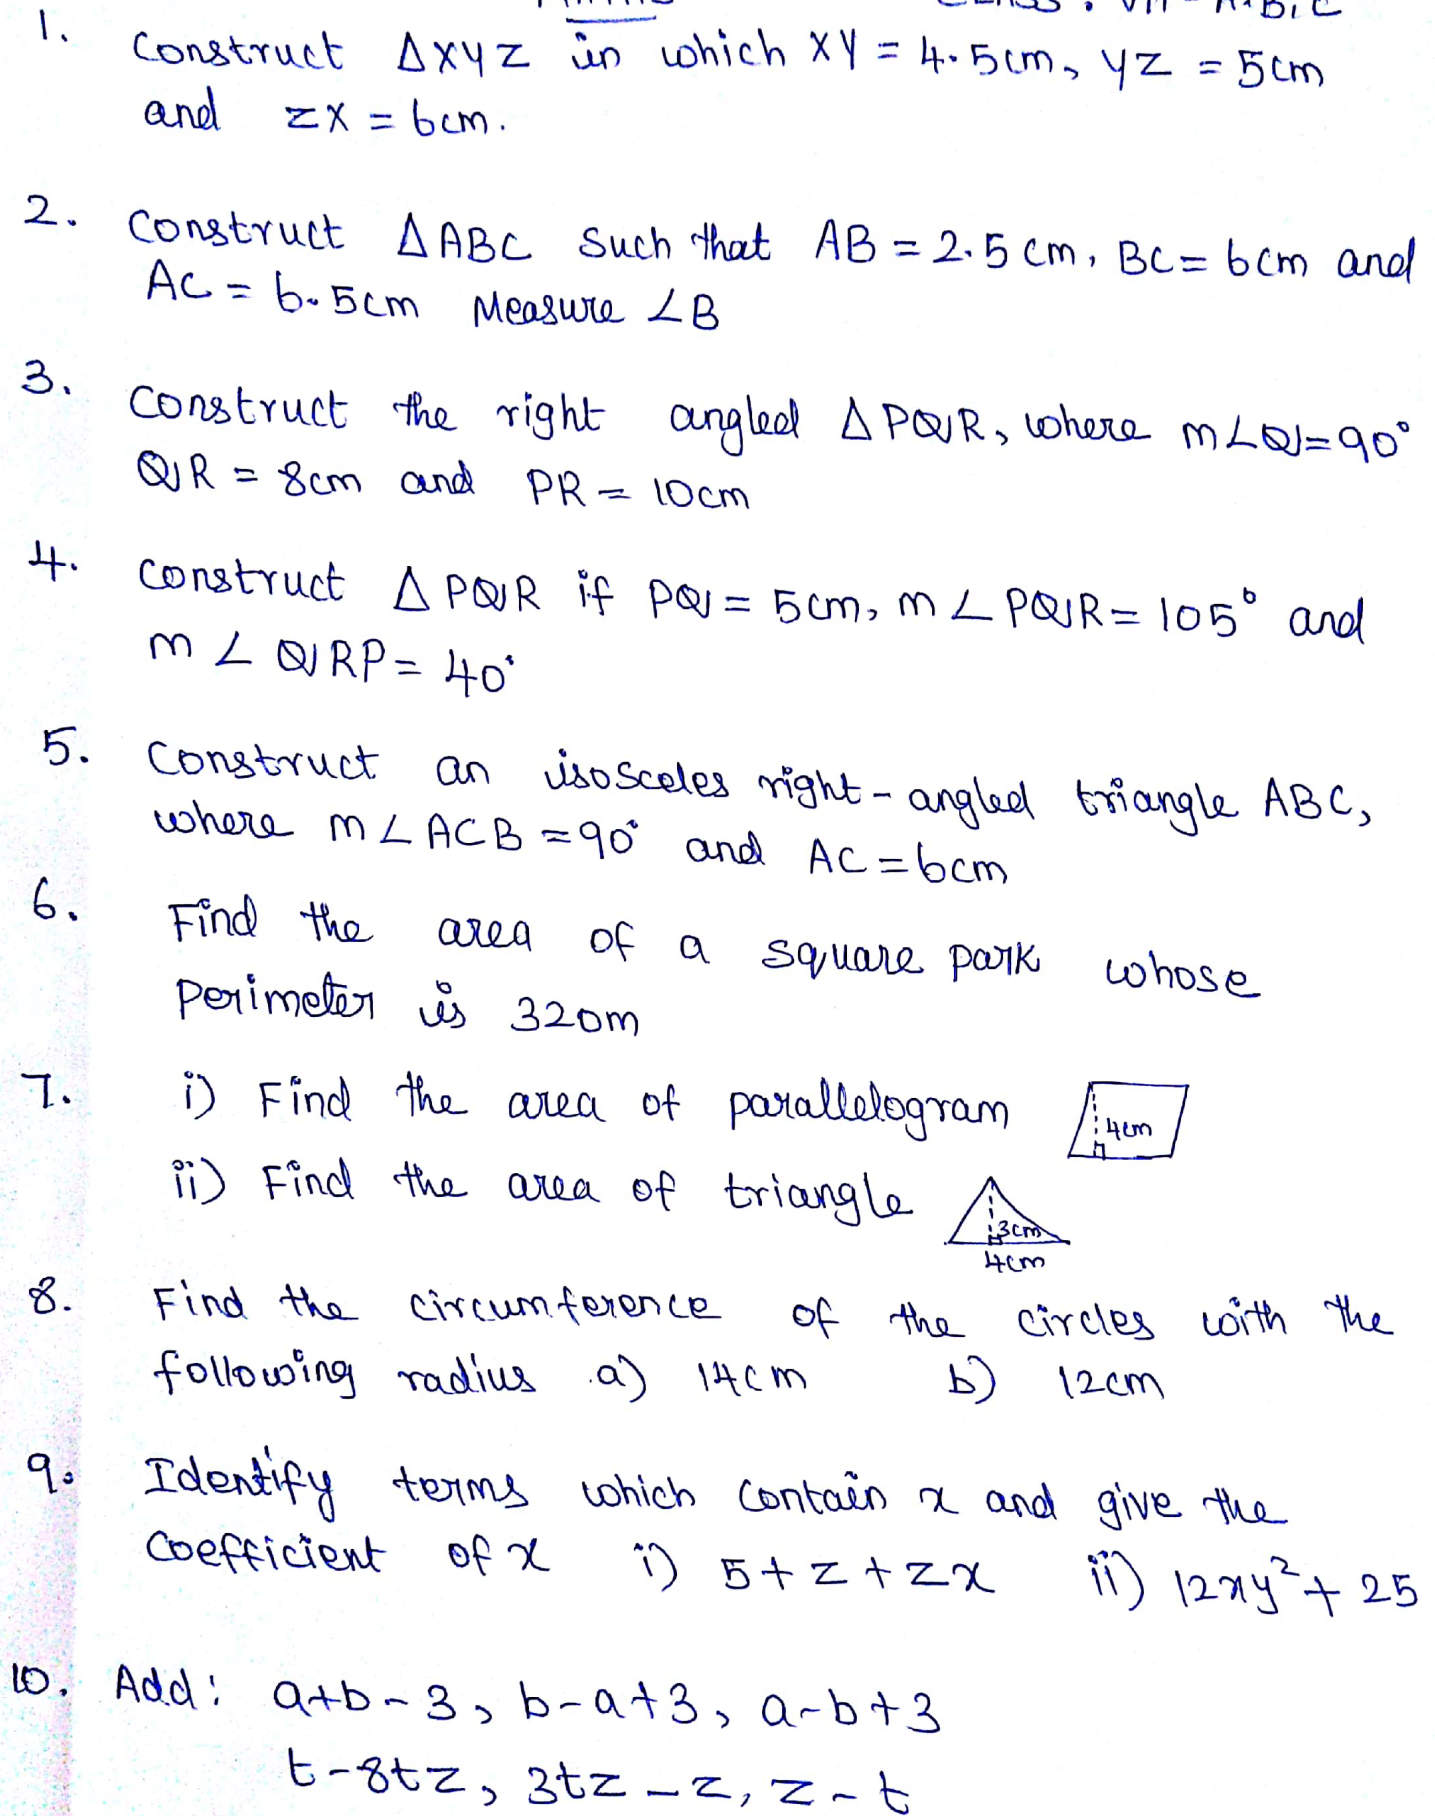 1. Construct ΔXYZ in which XY = 4.5cm, YZ = 5cm
and ZX = 6cm.
2. Construct ΔABC Such that AB = 2.5 cm, BC = 6cm and
AC = 6.5cm Measure ∠B
3. Construct the right angled ΔPQR, where m∠Q=90°
QR = 8cm and PR = 10cm
4. Construct ΔPQR if PQ = 5cm, m∠PQR = 105° and
m∠QRP = 40°
5. Construct an isosceles right-angled triangle ABC,
where m∠ACB = 90° and AC = 6cm
6. Find the area of a square park whose
perimeter is 320m
7. i) Find the area of parallelogram
4cm
ii) Find the area of triangle
3cm
4cm
8. Find the circumference of the circles with the
following radius a) 14cm b) 12cm
9. Identify terms which contain x and give the
Coefficient of x i) 5+z+zx ii) 12xy²+25
10. Add: a+b-3, b-a+3, a-b+3
t-8tz, 3tz-z, z-t